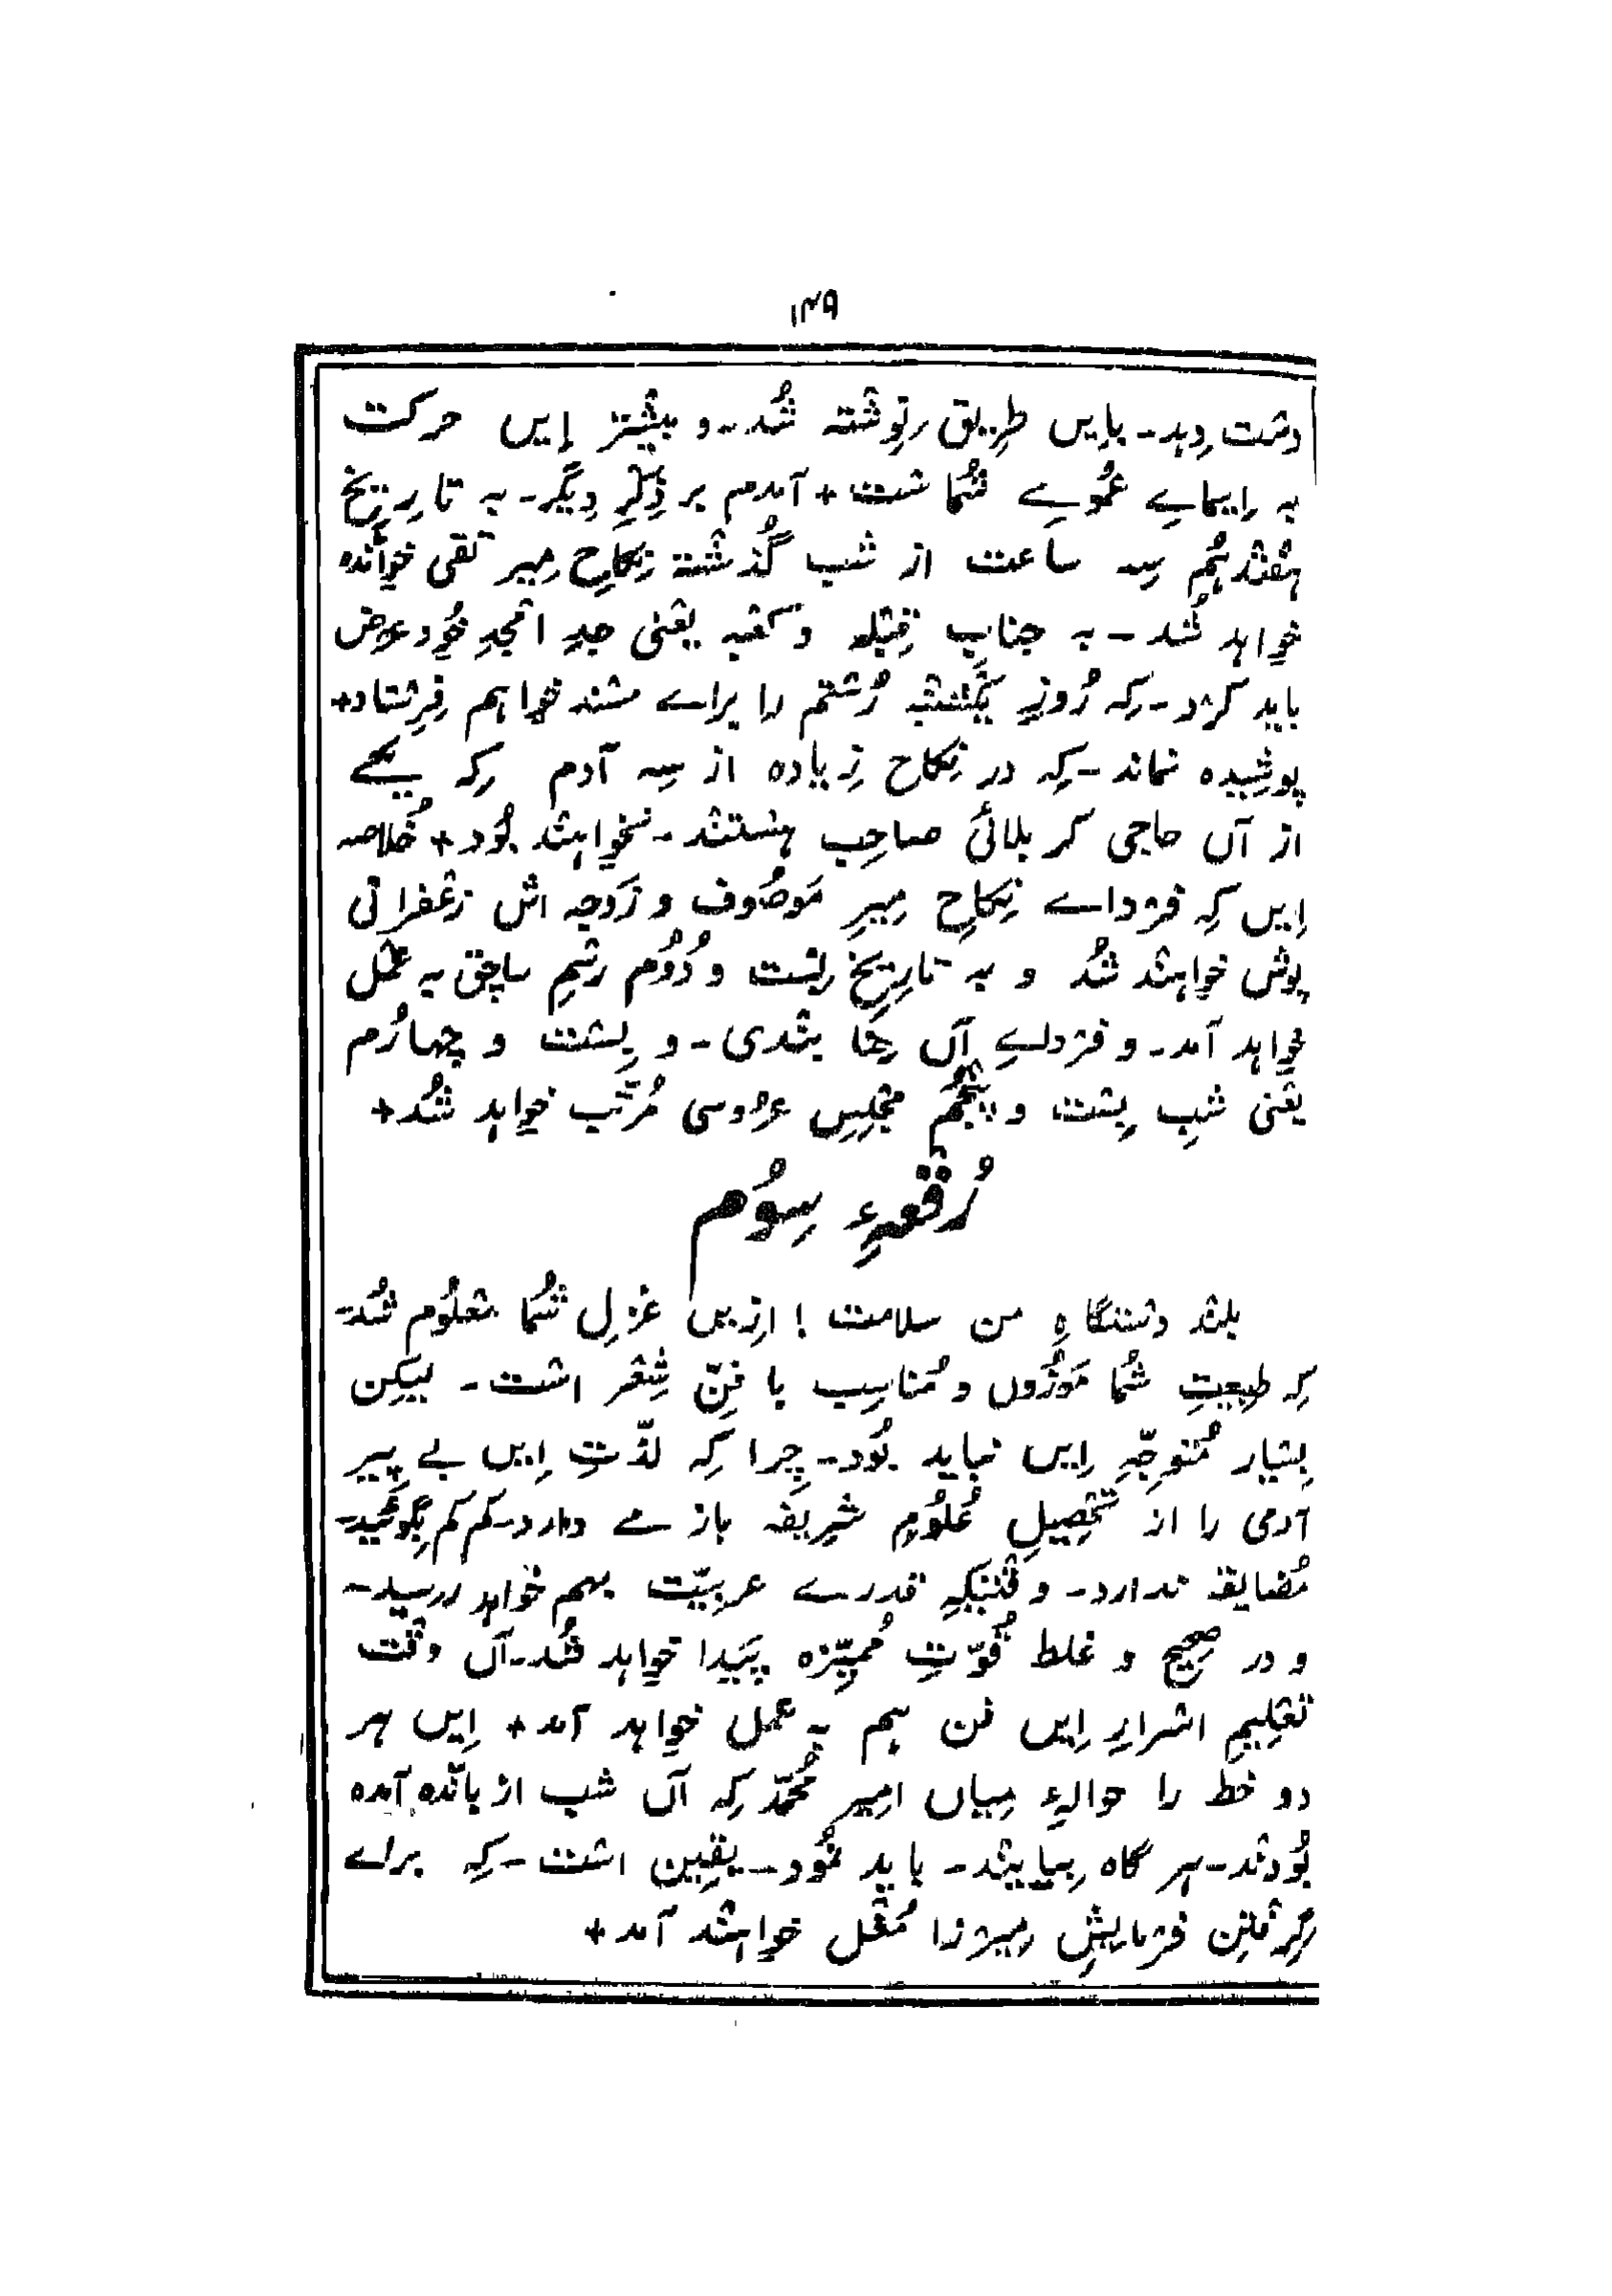 ۱۳۹
دست دِہد۔ بایں طریق نِوِشتہ شُد۔ و بیشتر اِیں حرکت
بہ اِیماے عُموے شُما ست + آمدم بر ذِکرِ دِیگر۔ بہ تارِیخِ
ہفدہُم سِہ ساعت از شب گُذشتہ نِکاحِ مِیر تقی خواندہ
خواہد شُد۔ بہ جنابِ قِبلہ و کعبہ یعنی جدِ امجدِ خُود عرض
باید کرد۔ کِہ رُوزِ یکشنبہ رُستم را براے مسند خواہم فِرِستاد +
پوشِیدہ نماند۔ کِہ در نِکاح زِیادہ از سِہ آدم کِہ یکے
از آں حاجی کربلائی صاحِب ہستند۔ نخواہند بُود + خُلاصہ
اِیں کِہ فرداے نِکاحِ مِیرِ مَوصُوف و زَوجہ اش زعفرانی
پوش خواہند شُد و بہ تارِیخِ بِست و دُوُم رسمِ ساچق بہ عمل
خواہد آمد۔ و فرداے آں حِنا بندی۔ و بِست و چہارُم
یعنی شبِ بِست و پنجُم مجلِسِ عروسی مُرتّب خواہد شُد +
رُقعہءِ سِوُم
بلند دستگاہِ من سلامت! ازِیں غزلِ شُما معلُوم شُد۔
کِہ طبِیعتِ شُما مَوزُوں و مُناسِب با فنِّ شِعر است۔ لیکِن
بِسیار مُتوجِّہِ اِیں نباید بُود۔ چِرا کِہ لذّتِ اِیں بے پِیر
آدمی را از تحصِیلِ عُلُومِ شرِیفہ باز مے دارد۔ کم کم بِگوئید۔
مُضایقہ ندارد۔ وقتیکِہ قدرے عربِیّت بہم خواہد رسید۔
و در صحِیح و غلط قُوّتِ مُمیِّزہ پَیدا خواہد شُد۔ آں وقت
تعلِیمِ اسرارِ اِیں فن ہم بہ عمل خواہد آمد + اِیں ہر
دو خط را حوالہءِ مِیاں امِیر مُحمّد کِہ آں شب از باندہ آمدہ
بُودند۔ ہر گاہ بِیایند۔ باید نمُود۔ یقِین است۔ کِہ براے
گِرِفتنِ فرمایشِ مِیرزا مُغل خواہند آمد +